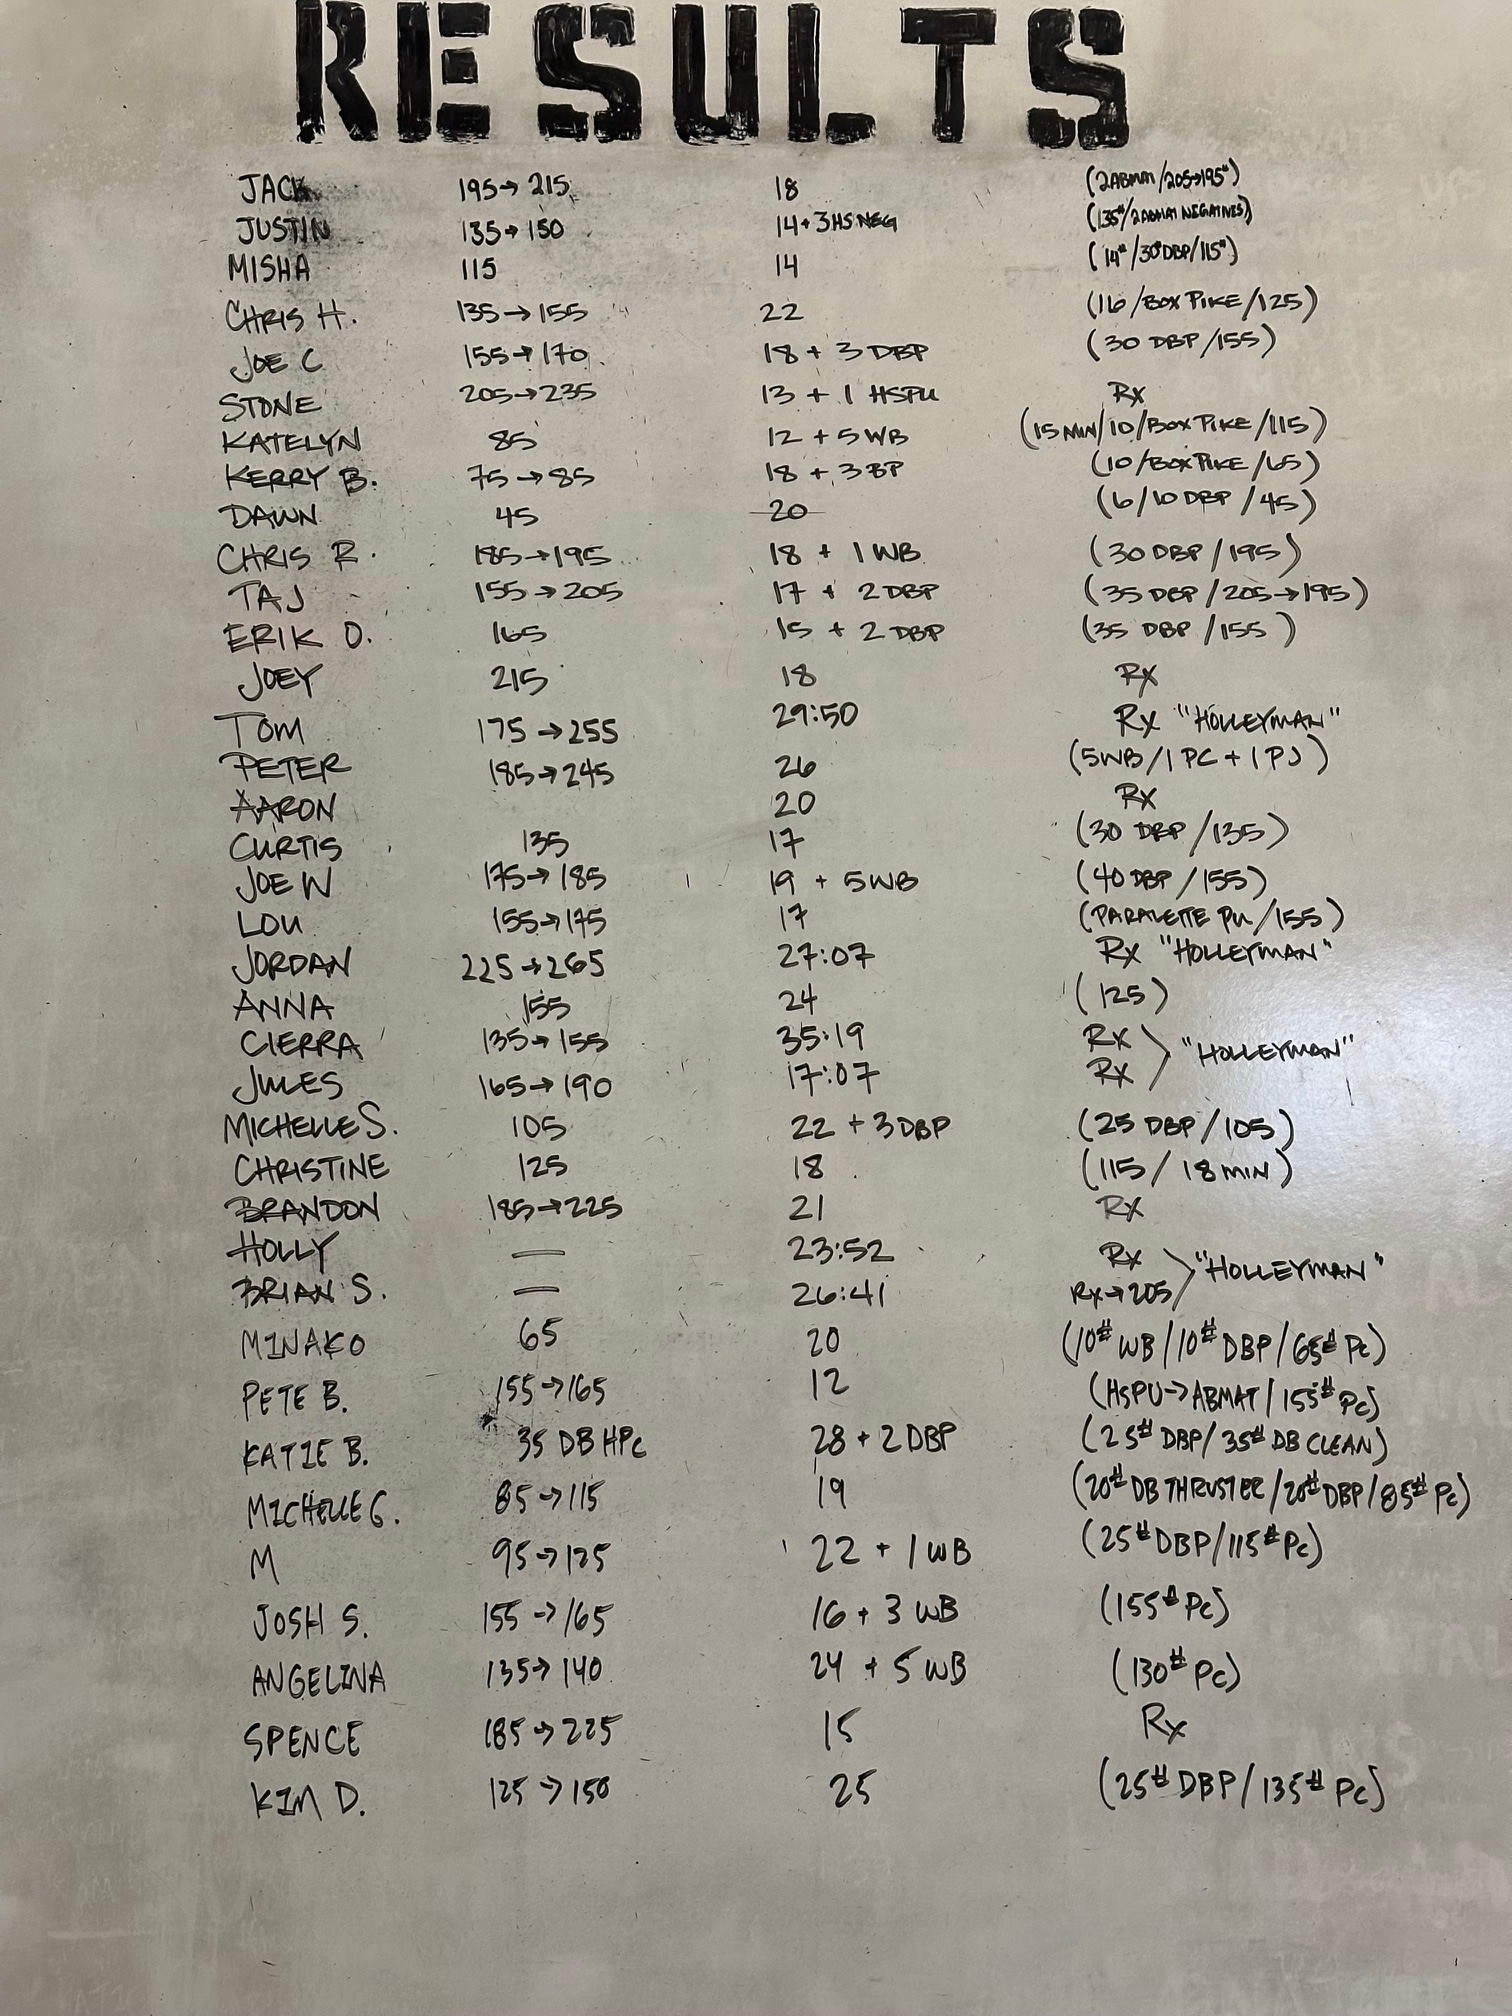 RESULTS
JACK 195→215 18 (2 ABMAT/205→195#)
JUSTIN 135→150 14+3 HS NEG (135#/2 ABMAT NEGATIVES)
MISHA 115 14 (14#/30# DBP/115#)
CHRIS H. 135→155 22 (16/BOX PIKE/125)
JOE C 155→170 18 + 3 DBP (30 DBP/155)
STONE 205→235 13 + 1 HSPU Rx
KATELYN 85 12 + 5 WB (15 MIN/10/BOX PIKE/115)
KERRY B. 75→85 18 + 3 BP (10/BOX PIKE/65)
DAWN 45 20 (6/10 DBP/45)
CHRIS R. 185→195 18 + 1 WB (30 DBP/195)
TAJ 155→205 17 + 2 DBP (35 DBP/205→195)
ERIK O. 165 15 + 2 DBP (35 DBP/155)
JOEY 215 18 Rx
TOM 175→255 29:50 Rx "HOLLEYMAN"
PETER 185→245 26 (5WB/1 PC + 1 PJ)
AARON 20 Rx
CURTIS 135 17 (30 DBP/135)
JOE W 175→185 19 + 5 WB (40 DBP/155)
LOU 155→175 17 (PARALETTE PU/155)
JORDAN 225→265 27:07 Rx "HOLLEYMAN"
ANNA 155 24 (125)
CIERRA 135→155 35:19 Rx "HOLLEYMAN"
JULES 165→190 17:07 Rx
MICHELLE S. 105 22 + 3 DBP (25 DBP/105)
CHRISTINE 125 18 (115/18 MIN)
BRANDON 185→225 21 Rx
HOLLY — 23:52 Rx "HOLLEYMAN"
BRIAN S. — 26:41 Rx→205
MINAKO 65 20 (10# WB/10# DBP/65# PC)
PETE B. 155→165 12 (HSPU→ABMAT/155# PC)
KATIE B. 35 DB HPC 28 + 2 DBP (25# DBP/35# DB CLEAN)
MICHELLE G. 85→115 19 (20# DB THRUSTER/20# DBP/85# PC)
M 95→125 22 + 1 WB (25# DBP/115# PC)
JOSH S. 155→165 16 + 3 WB (155# PC)
ANGELINA 135→140 24 + 5 WB (130# PC)
SPENCE 185→225 15 Rx
KIM D. 125→150 25 (25# DBP/135# PC)